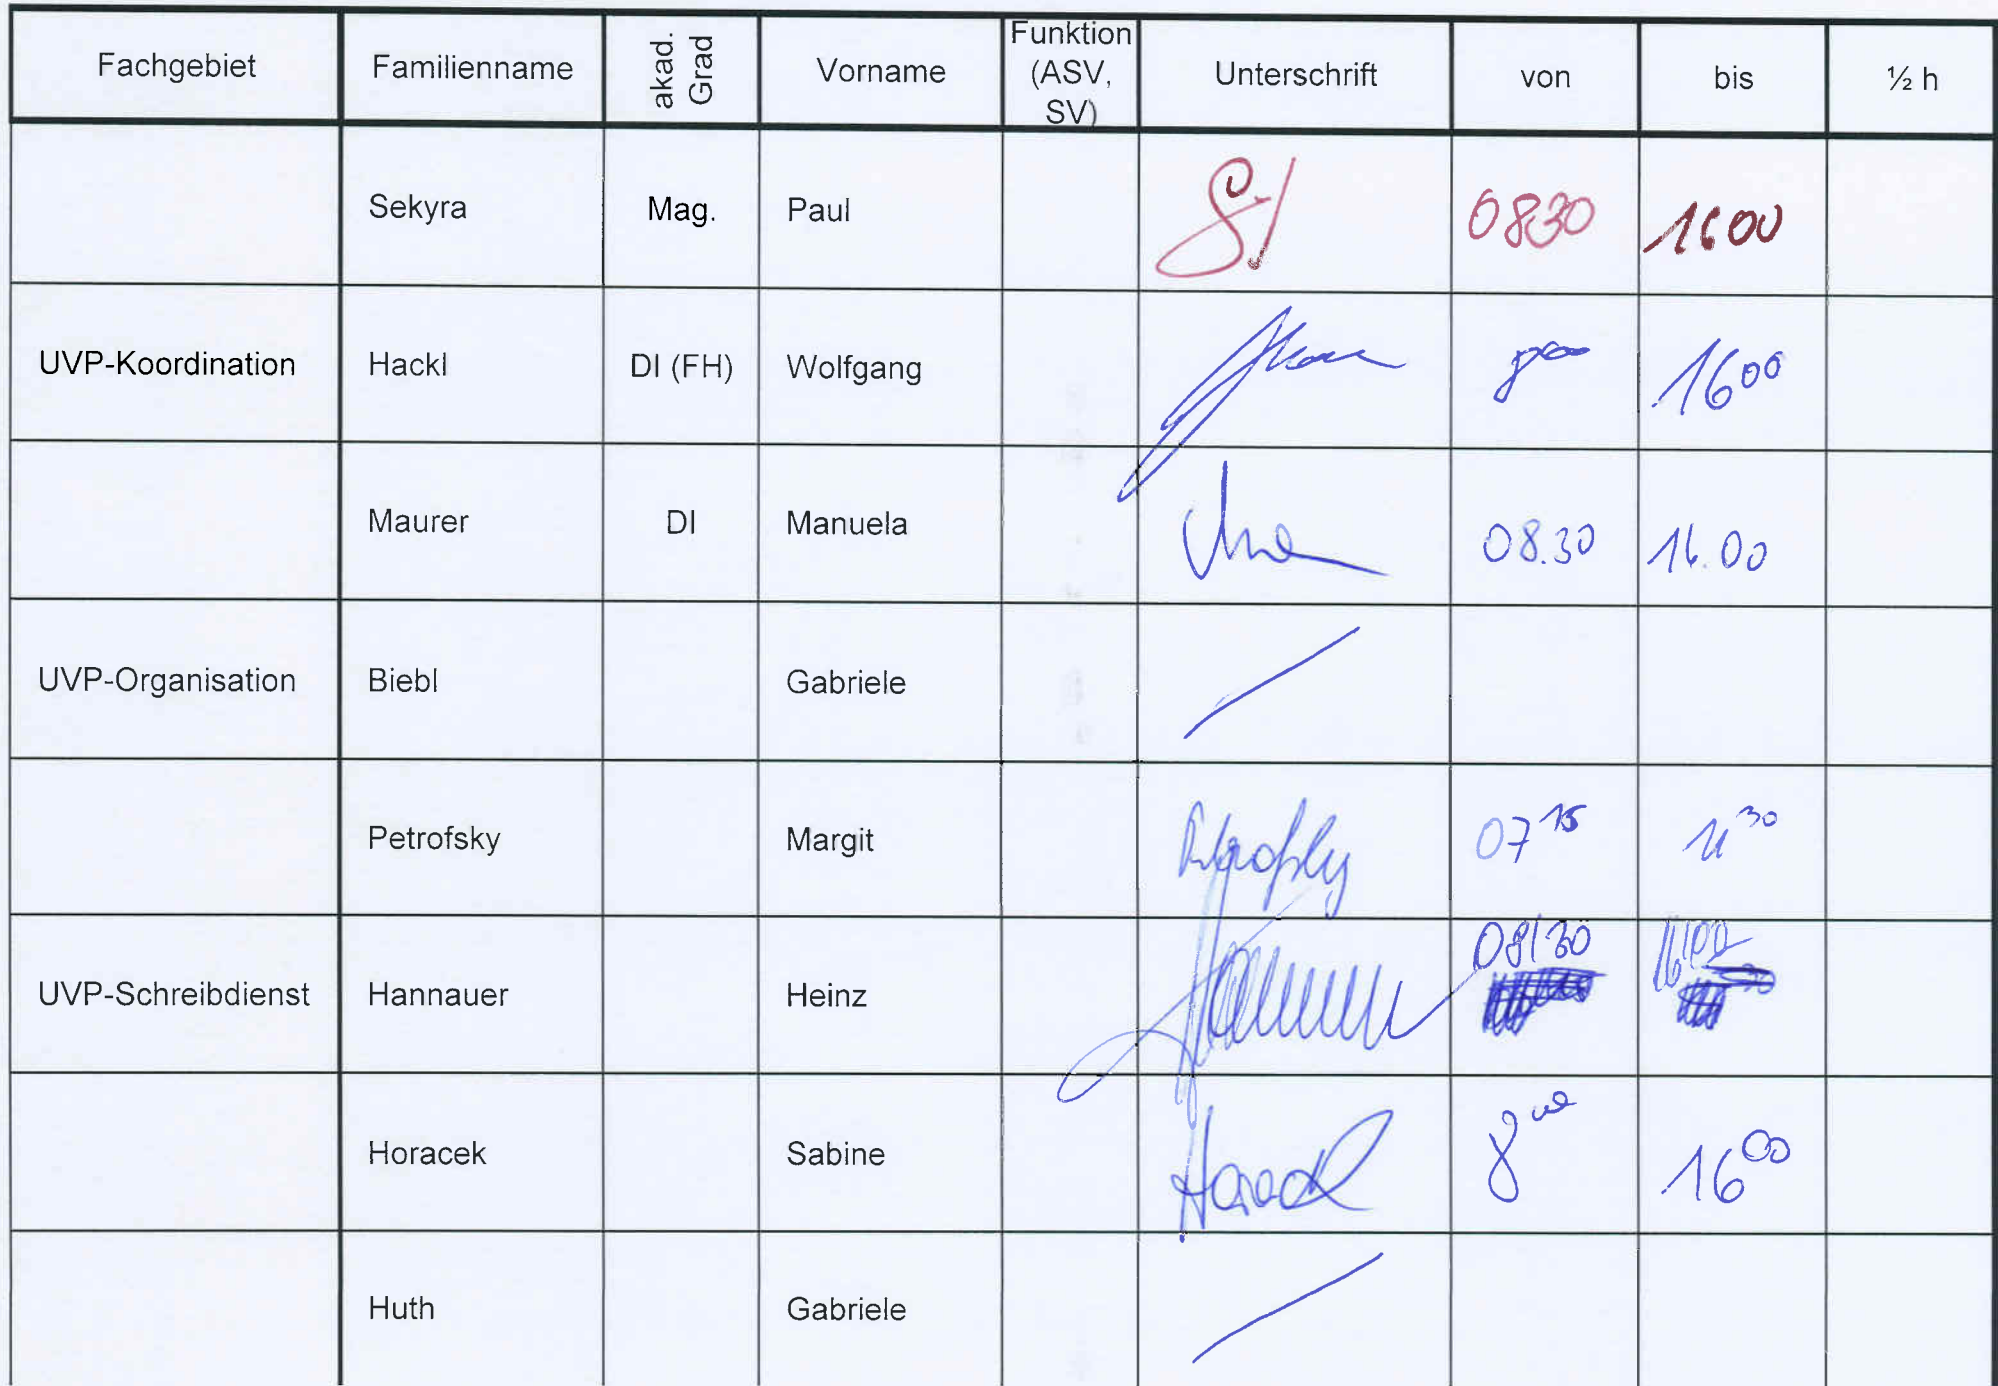 Fachgebiet Familienname akad. Grad Vorname Funktion (ASV, SV) Unterschrift von bis ½ h
Sekyra Mag. Paul 0830 1600
UVP-Koordination Hackl DI (FH) Wolfgang 16 00
Maurer DI Manuela 08.30 16.00
UVP-Organisation Biebl Gabriele
Petrofsky Margit Petrofsky 07 15 11 30
UVP-Schreibdienst Hannauer Heinz 08/30 16/00
Horacek Sabine Horacek 8 16 00
Huth Gabriele